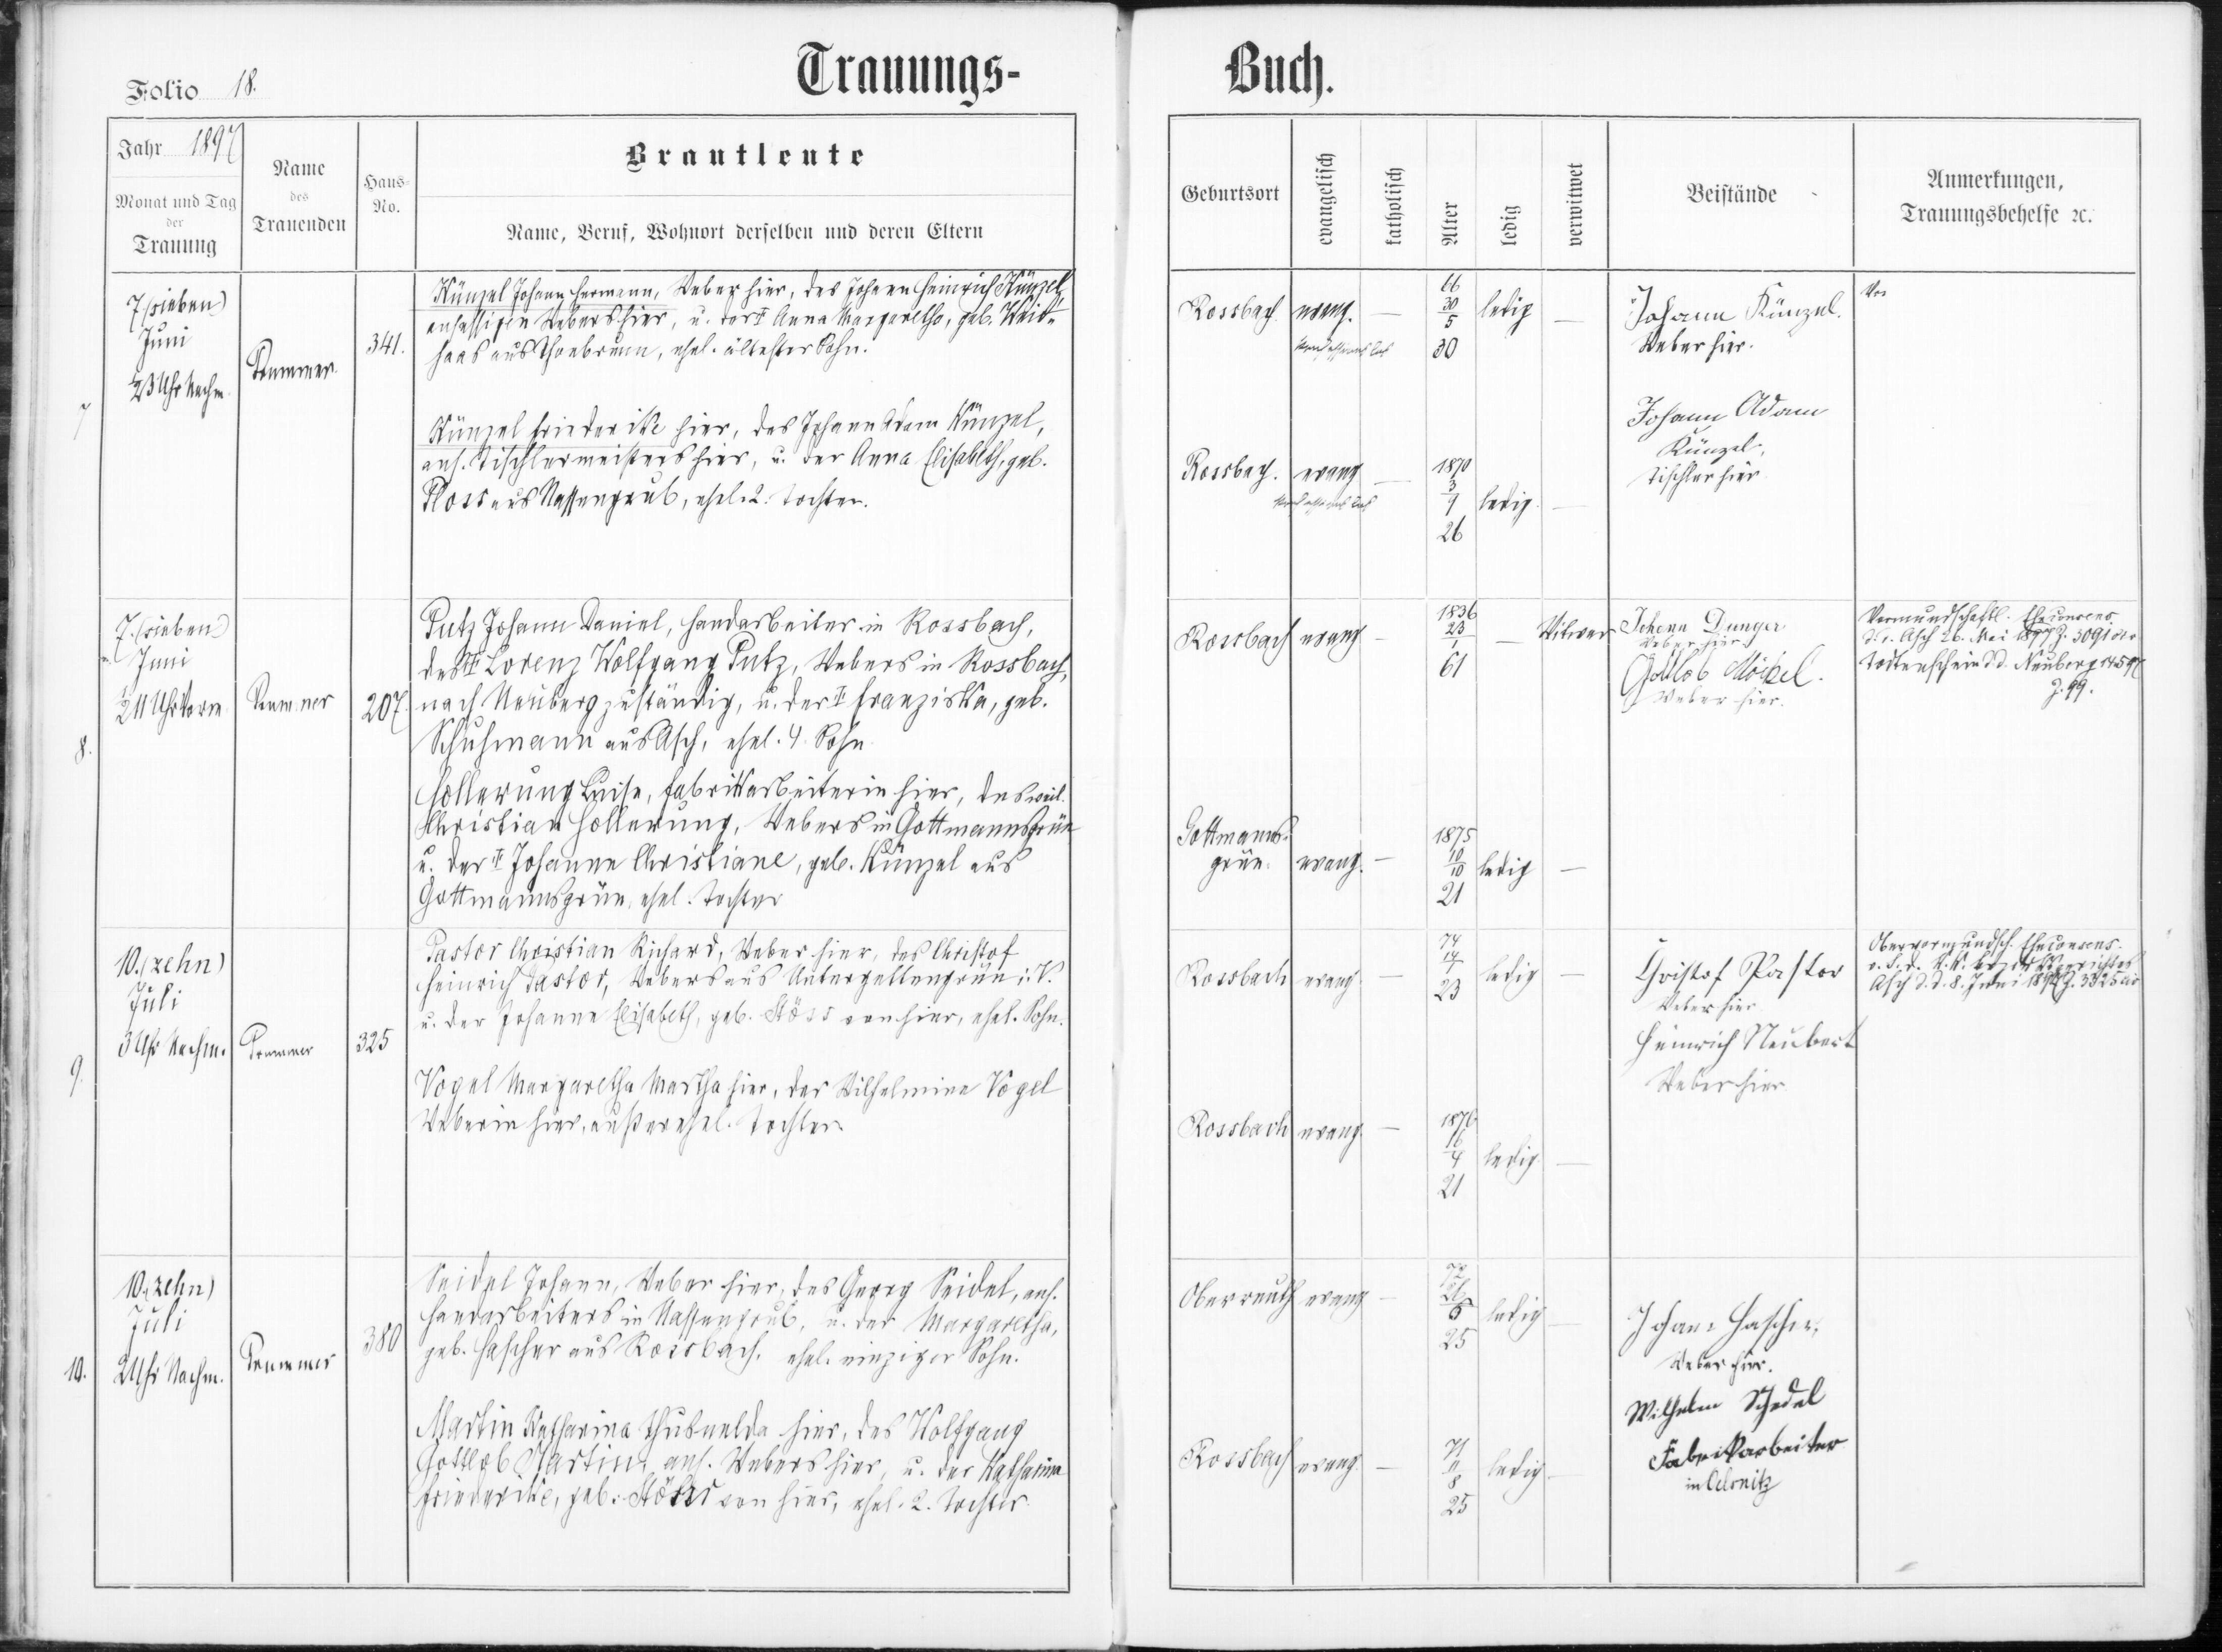 Trauungs-
Buch.
Folio 18.
Jahr 1897
Monat und Tag
der
Trauung
Name
des
Trauenden
Haus-
No.
Brautleute
Name, Beruf, Wohnort derselben und deren Eltern
Geburtsort
evangelisch
katholisch
Alter
ledig
verwitwet
Beistände
Anmerkungen,
Trauungsbehelfe ꝛc.
7
7 (sieben)
Juni
½3 Uhr Nachm.
341.
Künzel Johann Hermann, Weber hier, des Johann Heinrich Künzel,
ansässigen Webers hier, u. der † Anna Margaretha, geb. Weid-
haas aus Thonbrunn, ehel. ältester Sohn.
Künzel Friederike hier, des Johann Adam Künzel,
ans. Tischlermeisters hier, u. der Anna Elisabeth, geb.
Ploss aus Nassengrub, ehel. 2. Tochter.
Rossbach evang. —
66
30
5
30
ledig —
Johann Künzel.
Weber hier.
Johann Adam
Künzel,
Tischler hier
Rossbach. evang —
1870
3
9
26
ledig. —
8.
7. (sieben)
Juni
½11 Uhr Vorm.
207.
Putz Johann Daniel, Handarbeiter in Rossbach,
des † Lorenz Wolfgang Putz, Webers in Rossbach,
nach Neuberg zuständig, u. der † Franziska, geb.
Schuhmann aus Asch, ehel. 4. Sohn
Hollerung Luise, Fabrikarbeiterin hier, des weil.
Christian Hollerung, Webers in Gottmannsgrün
u. der † Johanne Christiane, geb. Künzel aus
Gottmannsgrün, ehel. Tochter
Rossbach evang —
1836
23
1
61
— Witwer
Johann Dunger
Weber hier
Gottlob Möckel.
Weber hier.
Vormundschaftl. Eheconsens
Asch 26. Mai 1897 Z. 3091
Todtenschein d.d. Neuberg
Z. 99.
Gottmanns-
grün. evang. —
1875
10
10
21
ledig —
9.
10. (zehn)
Juli
3 Uhr Nachm.
325
Pastor Christian Richard, Weber hier, des Christof
Heinrich Pastor, Webers aus Untergettengrün i. V.
u. der Johanne Elisabeth, geb. Stöss von hier, ehel. Sohn.
Vogel Margaretha Martha hier, der Wilhelmine Vogel
Weberin hier, außerehel. Tochter.
Rossbach evang —
74
14
7
23
ledig —
Christof Pastor
Weber hier
Heinrich Neubert
Weber hier.
Obervormundsch. Eheconsens.
Asch d.d. 8. Juni 1897 Z. 3325
Rossbach evang. —
1876
16
4
21
ledig —
10.
10. (zehn)
Juli
2 Uhr Nachm.
380
Seidel Johann, Weber hier, des Georg Seidel, ans.
Handarbeiters in Nassengrub, u. der Margaretha,
geb. Hascher aus Rossbach, ehel. einziger Sohn.
Martin Katharina Thusnelda hier, des Wolfgang
Gottlob Martin, ans. Webers hier, u. der Katharina
Friederike, geb. Stöss von hier, ehel. 2. Tochter.
Oberreuth evang —
72
26
25
ledig —
Johann Hascher,
Weber hier.
Wilhelm Schedel
Fabrikarbeiter
in Oelsnitz
Rossbach evang. —
71
11
8
25
ledig —